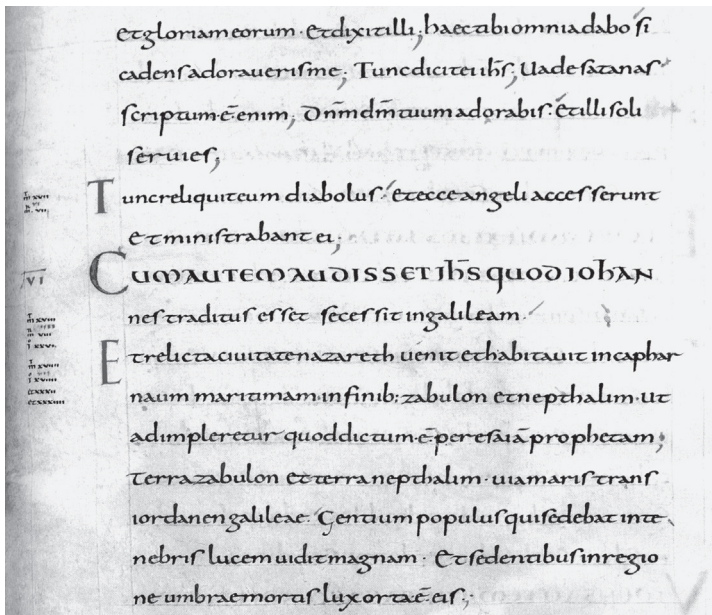 et gloriam eorum · Et dixit illi; haec tibi omnia dabo si
cadens adoraueris me; Tunc dicit ei ihs̄; Uade satanas
scriptum ē enim; Dn̄m dm̄ tuum adorabis· et illi soli
seruies;
Tunc reliquit eum diabolus· et ecce angeli accesserunt
et ministrabant ei;
VI
CUM AUTEM AUDISSET IHS̄ QUOD IOHAN
nes traditus esset secessit in galileam·
Et relicta ciuitate nazareth uenit et habitauit in caphar
naum maritimam· in finib; zabulon et nepthalim· Ut
adimpleretur quod dictum ē per esaiā prophetam;
Terra zabulon et terra nepthalim· uia maris trans
iordanen galileae· Gentium populus qui sedebat in te
nebris lucem uidit magnam· Et sedentibus in regio
ne umbrae mortis lux orta ē eis;